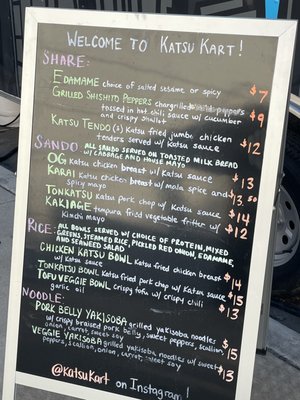 WELCOME TO KATSU KART!
SHARE:
EDAMAME choice of salted sesame or spicy $7
GRILLED SHISHITO PEPPERS chargrilled peppers
tossed in hot chili sauce w/ cucumber $9
and crispy shallot
KATSU TENDO (3) Katsu fried jumbo chicken
tenders served w/ Katsu sauce $12
SANDO: ALL SANDO SERVED ON TOASTED MILK BREAD
w/ CABBAGE AND HOUSE MAYO
OG Katsu chicken breast w/ Katsu sauce $13
KARAI Katsu chicken breast w/ mala spice and $13.50
spicy mayo
TONKATSU Katsu pork chop w/ Katsu sauce $14
KAKIAGE tempura fried vegetable fritter w/ $12
Kimchi mayo
RICE: ALL BOWLS SERVED W/ CHOICE OF PROTEIN, MIXED
GREENS, STEAMED RICE, PICKLED RED ONION, EDAMAME,
AND SEAWEED SALAD
CHICKEN KATSU BOWL Katsu fried chicken breast $14
w/ Katsu sauce
TONKATSU BOWL Katsu fried pork chop w/ Katsu sauce $15
TOFU VEGGIE BOWL crispy tofu w/ crispy chili $13
garlic oil
NOODLE:
PORK BELLY YAKISOBA grilled yakisoba noodles
w/ crispy braised pork belly, sweet peppers, scallion, $15
onion, carrot, sweet soy
VEGGIE YAKISOBA grilled yakisoba noodles w/ sweet $13
peppers, scallion, onion, carrot, sweet soy
@KATSUKART on Instagram!